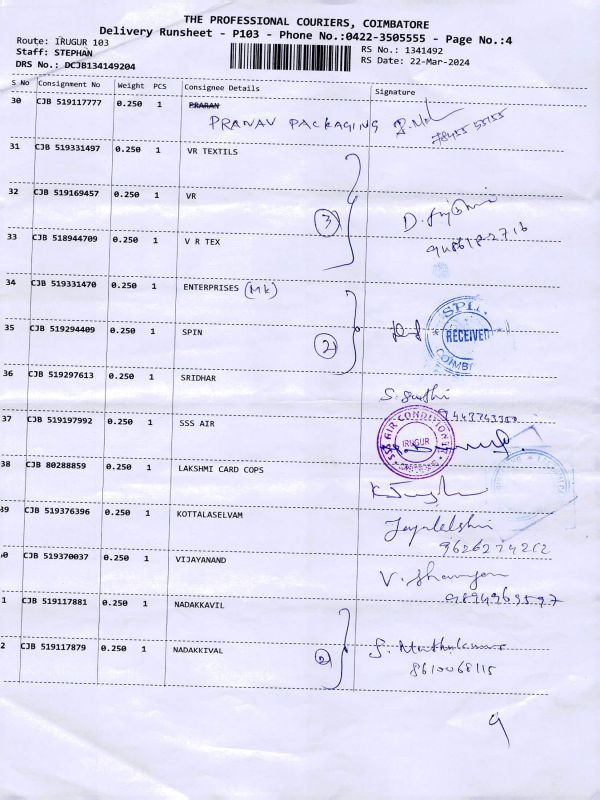 THE PROFESSIONAL COURIERS, COIMBATORE
Delivery Runsheet - P103 - Phone No.:0422-3505555 - Page No.:4
Route: IRUGUR 103
Staff: STEPHAN
DRS No.: DCJB134149204
RS No.: 1341492
RS Date: 22-Mar-2024
S No Consignment No Weight PCS Consignee Details Signature
30 CJB 519117777 0.250 1 PRARAN
PRANAV PACKAGING
31 CJB 519331497 0.250 1 VR TEXTILS
32 CJB 519169457 0.250 1 VR
3
33 CJB 518944709 0.250 1 V R TEX
34 CJB 519331470 0.250 1 ENTERPRISES (Mk)
35 CJB 519294409 0.250 1 SPIN
2
RECEIVED
36 CJB 519297613 0.250 1 SRIDHAR
37 CJB 519197992 0.250 1 SSS AIR
SSS AIR CONDITION
IRUGUR
38 CJB 80288859 0.250 1 LAKSHMI CARD COPS
39 CJB 519376396 0.250 1 KOTTALASELVAM
0 CJB 519370037 0.250 1 VIJAYANAND
1 CJB 519117881 0.250 1 NADAKKAVIL
2 CJB 519117879 0.250 1 NADAKKIVAL
2
8610068115
9